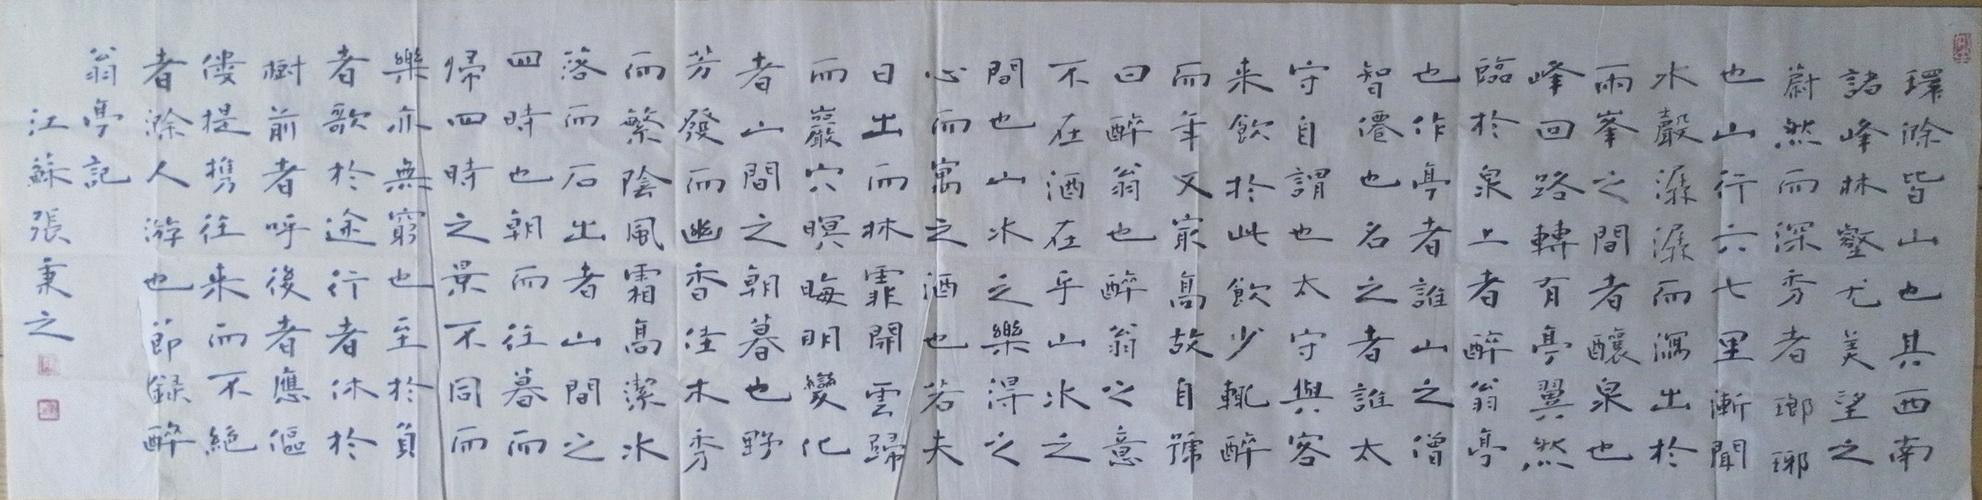 環滁皆山也其西南
諸峰林壑尤美望之
蔚然而深秀者瑯琊
也山行六七里漸聞
水聲潺潺而瀉出於
兩峯之間者釀泉也
峰回路轉有亭翼然
臨於泉上者醉翁亭
也作亭者誰山之僧
智僊也名之者誰太
守自謂也太守與客
来飲於此飲少輒醉
而年又寂高故自號
曰醉翁也醉翁之意
不在酒在乎山水之
間也山水之樂得之
心而寓之酒也若夫
日出而林霏開雲歸
而巖穴暝晦明變化
者山間之朝暮也野
芳發而幽香佳木秀
而繁陰風霜高潔水
落而石出者山間之
四時也朝而往暮而
歸四時之景不同而
樂亦無窮也至於負
者歌於途行者休於
樹前者呼後者應傴
僂提携往来而不絶
者滁人游也節録醉
翁亭記
江蘇張秉之